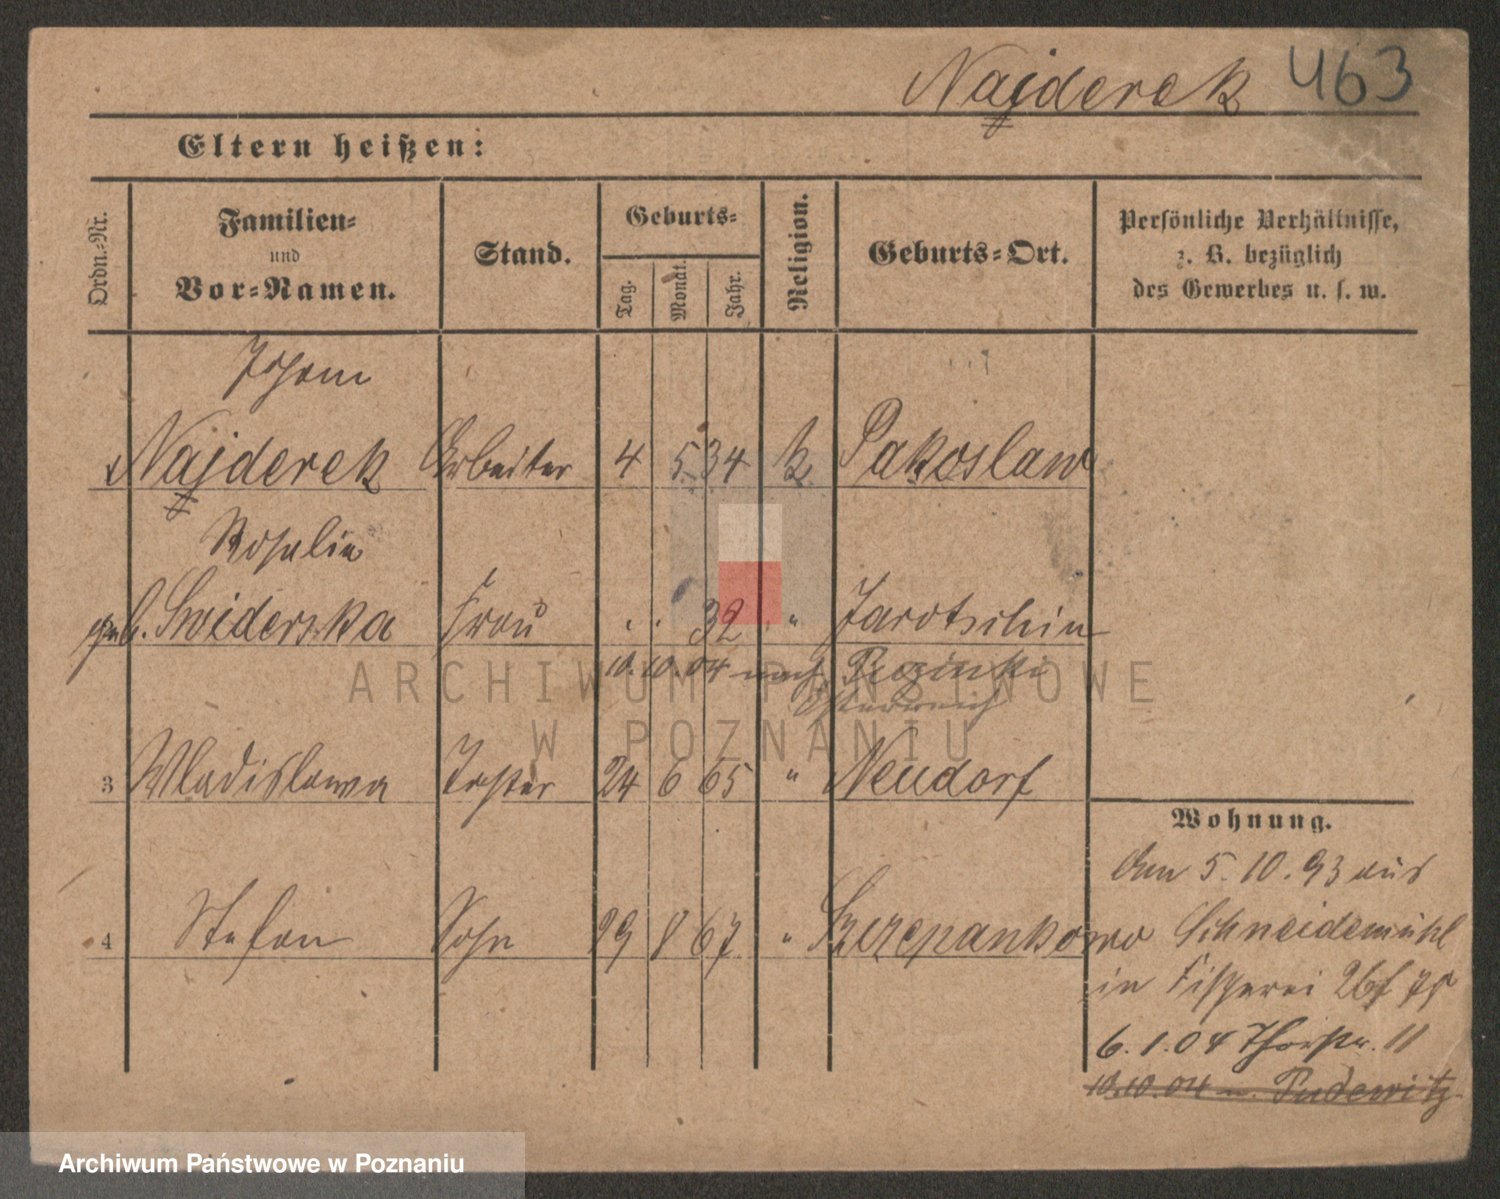 Najderek 463
Eltern heißen:
Ordn.-Nr.
Familien-
und
Vor-Namen.
Stand.
Geburts-
Tag.
Monat.
Jahr.
Religion.
Geburts-Ort.
Persönliche Verhältnisse,
z. B. bezüglich
des Gewerbes u. s. w.
Johann
Najderek Arbeiter 4 5 34 k. Pakoslaw
Rosalia
geb. Swiderska Frau " " 32 " Jarotschin
10.10.04 nach
Österreich
3 Wladislawa Tochter 24 6 65 " Neudorf
4 Stefan Sohn 29 8 67 " Szczepankowo
Wohnung.
Am 5.10.93 aus
Schneidemühl
in Fischerei
6.1.04 Thorstr. 11
10.10.04 n. Pudewitz
ARCHIWUM PAŃSTWOWE
W POZNANIU
Archiwum Państwowe w Poznaniu